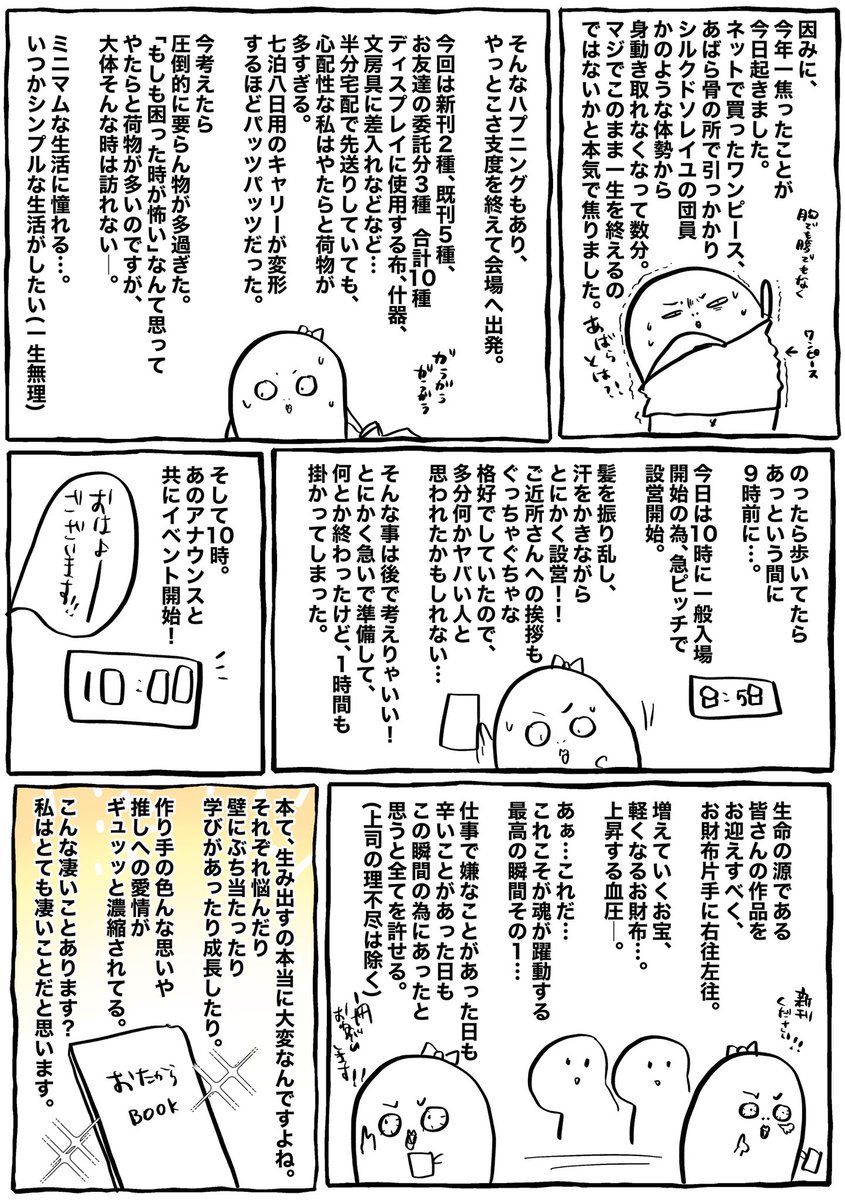 因みに、
今年一焦ったことが
今日起きました。
ネットで買ったワンピース、
あばら骨の所で引っかかり
シルクドソレイユの団員
かのような体勢から
身動き取れなくなって数分。
マジでこのまま一生を終えるの
ではないかと本気で焦りました。
胸でも腹でもなく
あばら
とは…!!
←ワンピース
そんなハプニングもあり、
やっとこさ支度を終えて会場へ出発。
今回は新刊2種、既刊5種、
お友達の委託分3種 合計10種
ディスプレイに使用する布、什器、
文房具に差入れなどなど…
半分宅配で先送りしていても、
心配性な私はやたらと荷物が
多すぎる。
七泊八日用のキャリーが変形
するほどパッツパッツだった。
今考えたら
圧倒的に要らん物が多過ぎた。
「もしも困った時が怖い」なんて思って
やたらと荷物が多いのですが、
大体そんな時は訪れない―。
ミニマムな生活に憧れる…。
いつかシンプルな生活がしたい(一生無理)
がらがら
がらがら
のったら歩いてたら
あっという間に
9時前に…。
今日は10時に一般入場
開始の為、急ピッチで
設営開始。
8:58
髪を振り乱し、
汗をかきながら
とにかく設営!!
ご近所さんへの挨拶も
ぐっちゃぐちゃな
格好でしていたので、
多分何かヤバい人と
思われたかもしれない…
そんな事は後で考えりゃいい!
とにかく急いで準備して、
何とか終わったけど、1時間も
掛かってしまった。
そして10時。
あのアナウンスと
共にイベント開始!
おはよー
ございます!!
10:00
生命の源である
皆さんの作品を
お迎えすべく、
お財布片手に右往左往。
増えていくお宝、
軽くなるお財布…。
上昇する血圧―。
あぁ…これだ…
これこそが魂が躍動する
最高の瞬間その1…
仕事で嫌なことがあった日も
辛いことがあった日も
この瞬間の為にあったと
思うと全てを許せる。
(上司の理不尽は除く)
新刊
ください!!
1冊
お願い
します!!
本て、生み出すの本当に大変なんですよね。
それぞれ悩んだり
壁にぶち当たったり
学びがあったり成長したり。
作り手の色んな思いや
推しへの愛情が
ギュッッと濃縮されてる。
こんな凄いことあります?
私はとても凄いことだと思います。
おたから
BOOK